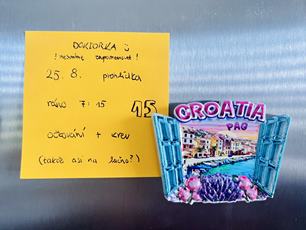 DOKTORKA :)
! nesmíme zapomenout !
25. 8. prohlídka
ráno 7:15 45
očkování + krev
(takže asi na lačno?)
CROATIA
PAG